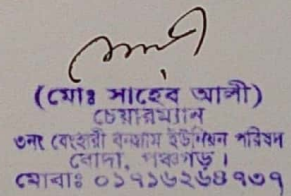 (মোঃ সাহেব আলী)
চেয়ারম্যান
৩নং বেংহারী বনগ্রাম ইউনিয়ন পরিষদ
বোদা, পঞ্চগড়।
মোবাঃ ০১৭১৬২৬৪৭৩৭